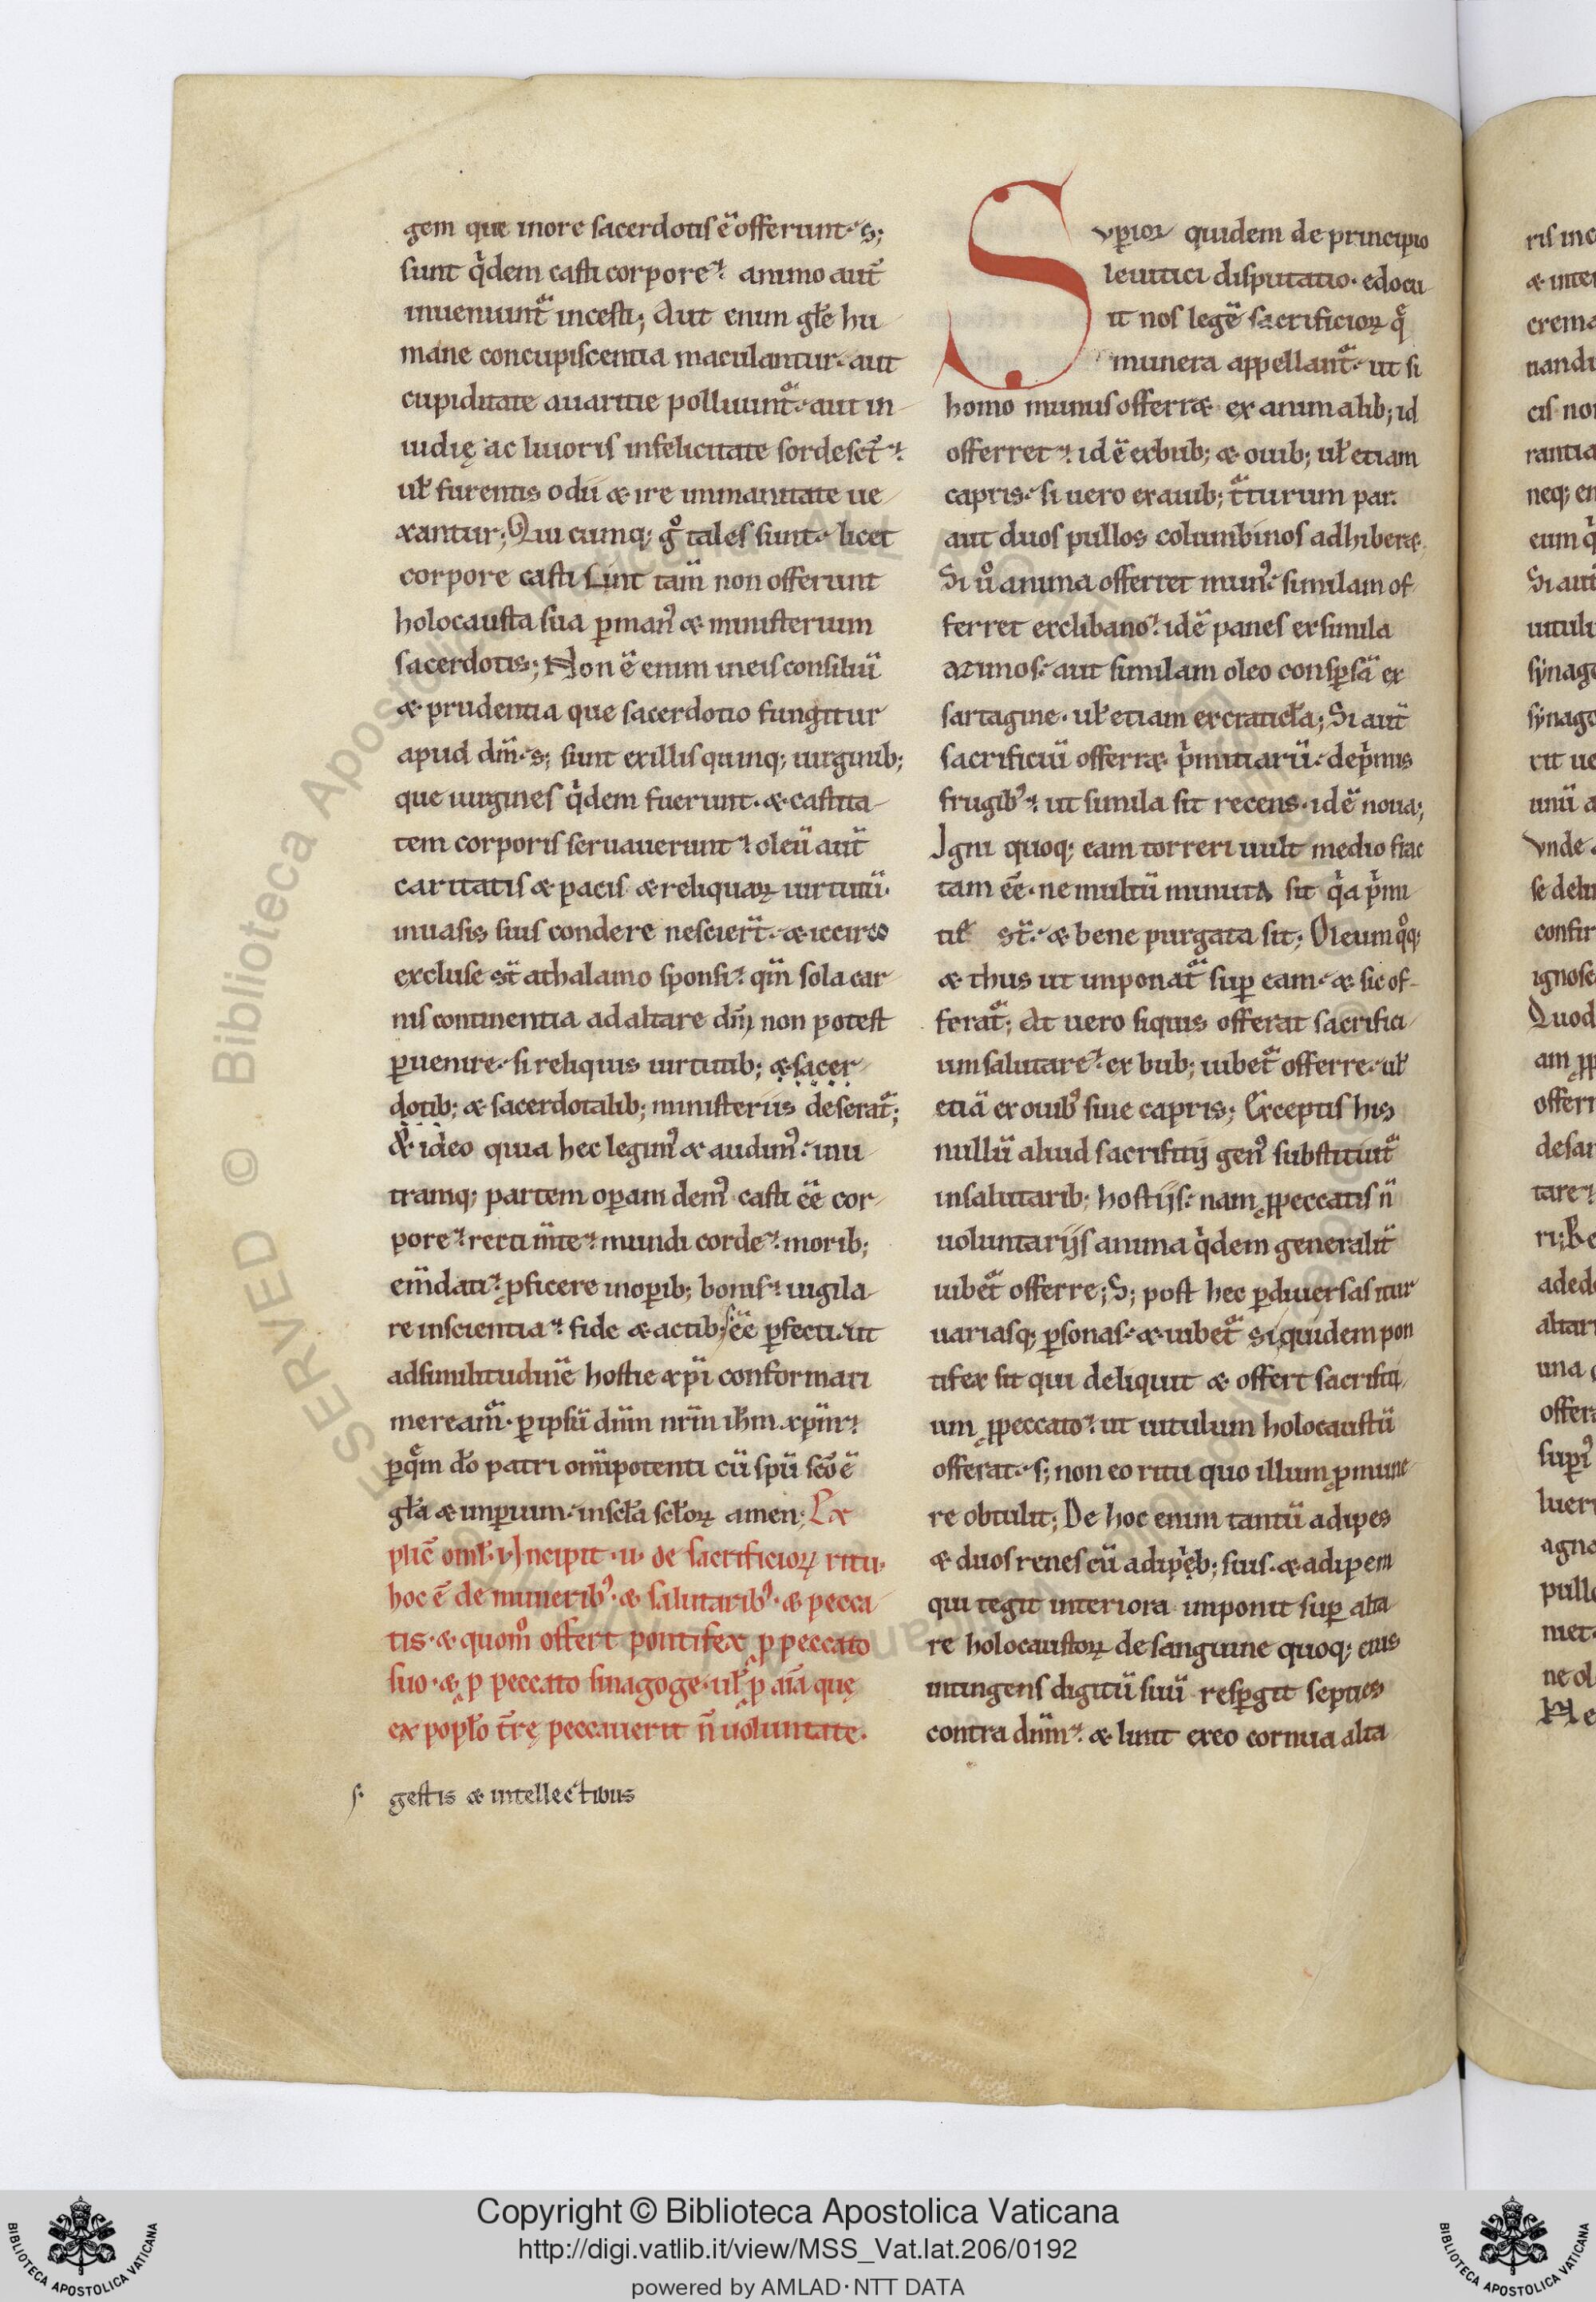 gem que more sacerdotis ē offerunt. s;
sunt q̇dem casti corpore. animo aut̄
inueniunt̃ incesti; Aut enim gl̄e hu
mane concupiscentia maculantur. aut
cupiditate auaritie polluunt̃. aut in
uidię ac liuoris infelicitate sordesc̄t.
ul̄ furentis odii & ire inmanitate ue
xantur; Qui cumq; gͦ tales sunt. licet
corpore casti sint tam̄ non offerunt
holocausta sua ꝑman᾽ & ministerium
sacerdotis; Non ē enim in eis consiliū
& prudentia que sacerdotio fungitur
apud dm̄. s; sunt ex illis quinq; uirginib;
que uirgines q̇dem fuerunt. & castita
tem corporis seruauerunt. oleū aut̄
caritatis & pacis & reliquaꝝ uirtutū.
in uasis suis condere nescier̄t. & iccirco
excluse st̄ a thalamo sponsi. qm̄ sola car
nis continentia ad altare dn̄i non potest
ꝑuenire. si reliquis uirtutib; & sacer
dotib; & sacerdotalib; ministeriis deserat̃;
& ideo quia hec legim᾽ & audim᾽. in u
tramq; partem oꝑam dem᾽ casti ēe cor
pore. recti m̄te. mundi corde. morib;
em̄dati. ꝓficere in oꝑib; bonis. uigila
re in scientia. fide & actib; ēe ꝑfecti. ut
ad similitudinē hostie xp̄i conformari
meream̃. ꝑ ipsū dn̄m nr̄m ih̄m xp̄m.
ꝑ quē dō patri om̄ipotenti cū spū scō ē
gl̄a & imꝑium. in scl̄a scl̄oꝝ amen; Ex
plic̄ oml̄. i. Incipit. ii. de sacrificioꝝ ritu.
hoc ē de munerib᾽. & salutarib᾽. & pecca
tis. & quom̊ offert pontifex ꝓ peccato
suo. & ꝓ peccato sinagoge. ul̄ ꝓ aīa quę
ex popl̄o t̄rę peccauerit n̄ uoluntate.
s. gestis & intellectibus
Suꝑior quidem de principio
leuitici disputatio. edocu
it nos legē sacrificioꝝ q̄
munera appellant̃. ut si
homo munus offerr& ex animalib; id
offerret. id ē ex bub; & ouib; ul̄ etiam
capris. si uero ex auib; t̃turum par.
aut duos pullos columbinos adhiber&.
Si ů anima offerret mun᾽. similam of
ferret ex clibano. id ē panes ex simila
azimos. aut similam oleo consꝑsā ex
sartagine. ul̄ etiam ex craticl̄a; Si aut̄
sacrificiū offerr& p̍mitiarū. de p̍mis
frugib᾽. ut simila sit recens. id ē noua;
Igni quoq; eam torreri uult medio frac
tam ēe. ne multū minuta sit q̇a p̍mi
st̄. & bene purgata sit; Oleum qͦq;
& thus ut imponat̃ suꝑ eam. & sic of
ferat̃; At uero siquis offerat sacrifici
um salutare. ex bub; iubet̃ offerre. ul̄
etiā ex ouib᾽ siue capris; Exceptis his
nullū aliud sacrificij gen᾽ substituit̃
in salutarib; hostijs. nam ꝓ peccatis n̄
uoluntarijs anima q̇dem generalit̄
iubet̃ offerre; S; post hec ꝑ diuersas itur
uariasq; ꝑsonas. & iubet̃ si quidem pon
tifex sit qui deliquit & offert sacrifici
um ꝓ peccato. ut uitulum holocaustū
offerat. s; non eo ritu quo illum ꝓ mune
re obtulit; De hoc enim tantū adipes
& duos renes cū adipib; suis. & adipem
qui tegit interiora imponit suꝑ alta
re holocaustoꝝ de sanguine quoq; eius
intingens digitū suū resꝑgit septies
contra dn̄m. & linit ex eo cornua alta
Copyright © Biblioteca Apostolica Vaticana
http://digi.vatlib.it/view/MSS_Vat.lat.206/0192
powered by AMLAD·NTT DATA
BIBLIOTECA APOSTOLICA VATICANA
BIBLIOTECA APOSTOLICA VATICANA